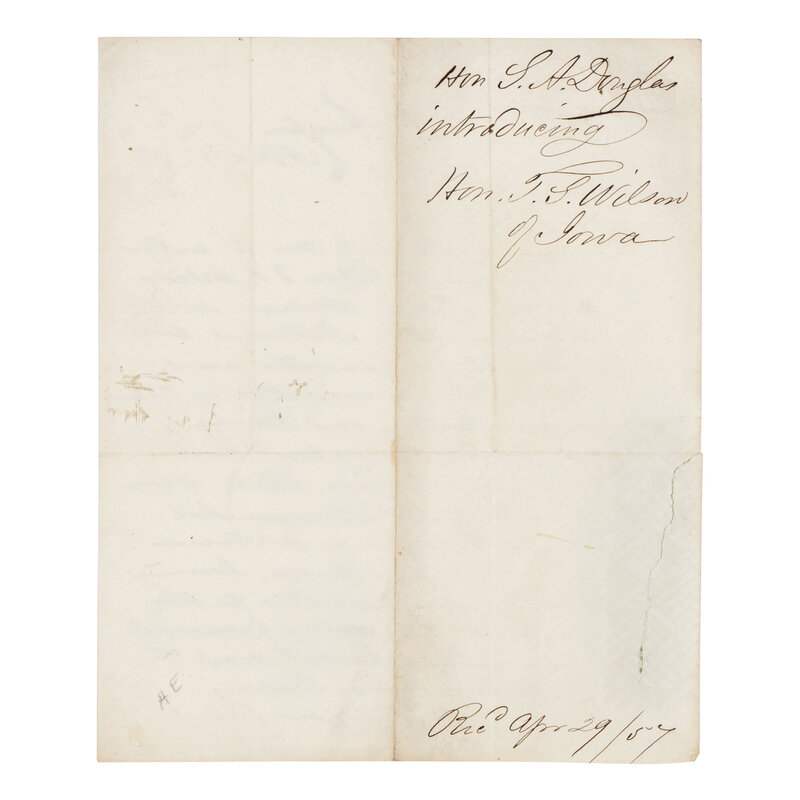 Hon S. A. Douglas
introducing
Hon. T. S. Wilson
of Iowa
Recd Apr 29/57
HE